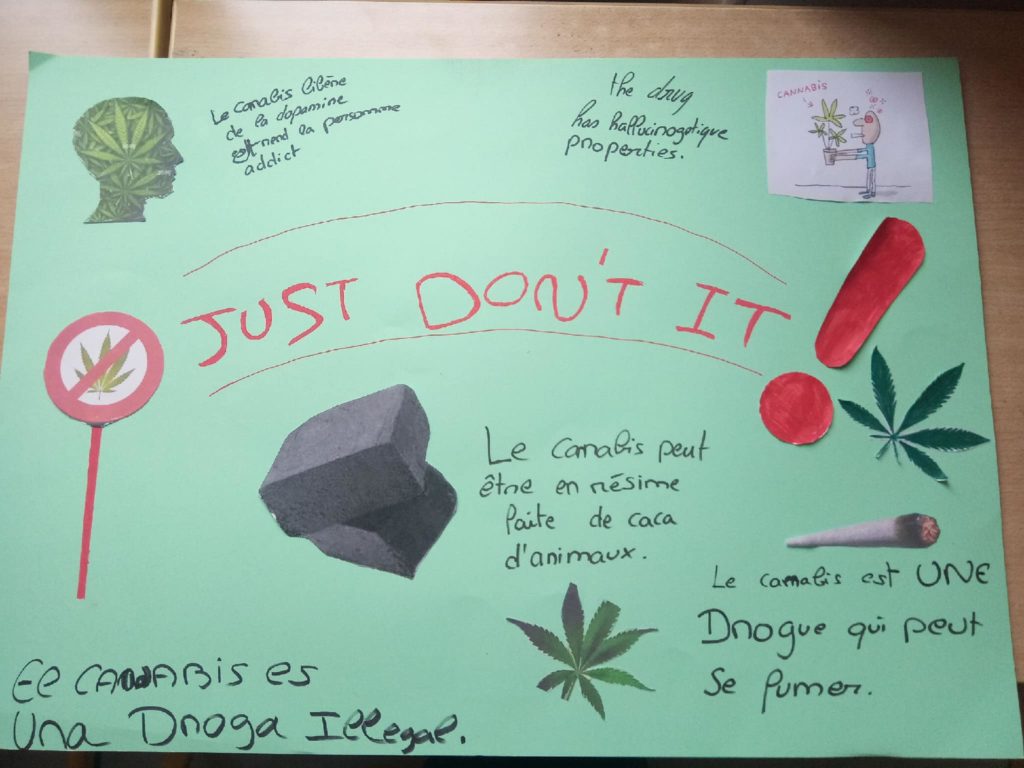 Le canabis libère
de la dopamine
et rend la personnne
addict
the drug
has hallucinogetique
properties.
CANNABIS
JUST DON'T IT !
Le canabis peut
être en résime
faite de caca
d'animaux.
Le cannabis est UNE
Drogue qui peut
Se fumer.
El CANNABis es
Una Droga Illegal.